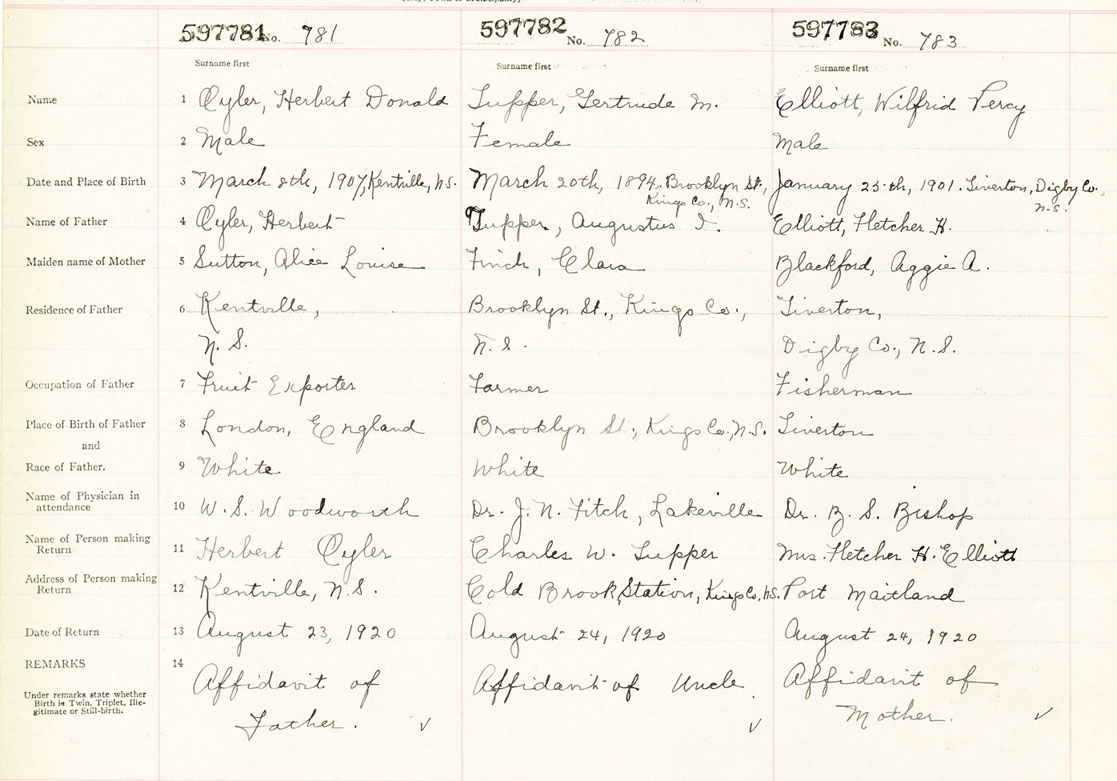 597781 No. 781
597782 No. 782
597783 No. 783
Surname first
Surname first
Surname first
Name 1 Oyler, Herbert Donald
Tupper, Gertrude M.
Elliott, Wilfrid Percy
Sex 2 Male
Female
Male
Date and Place of Birth 3 March 8th, 1907, Kentville, N.S.
March 20th, 1894. Brooklyn St.,
Kings Co., N.S.
January 25th, 1901. Tiverton, Digby Co.,
N.S.
Name of Father 4 Oyler, Herbert
Tupper, Augustus I.
Elliott, Fletcher H.
Maiden name of Mother 5 Sutton, Alice Louise
Finch, Clara
Blackford, Aggie A.
Residence of Father 6 Kentville,
N. S.
Brooklyn St., Kings Co.,
N. S.
Tiverton,
Digby Co., N.S.
Occupation of Father 7 Fruit Exporter
Farmer
Fisherman
Place of Birth of Father 8 London, England
Brooklyn St., Kings Co., N.S.
Tiverton
and
Race of Father. 9 White
White
White
Name of Physician in
attendance 10 W. S. Woodworth
Dr. J. N. Fitch, Lakeville
Dr. B. S. Bishop
Name of Person making
Return 11 Herbert Oyler
Charles W. Tupper
Mrs. Fletcher H. Elliott
Address of Person making
Return 12 Kentville, N.S.
Cold Brook Station, Kings Co, N.S.
Port Maitland
Date of Return 13 August 23, 1920
August 24, 1920
August 24, 1920
REMARKS 14
Under remarks state whether
Birth is Twin, Triplet, Ille-
gitimate or Still-birth.
Affidavit of
Father. ✓
Affidavit of Uncle
✓
Affidavit of
Mother. ✓